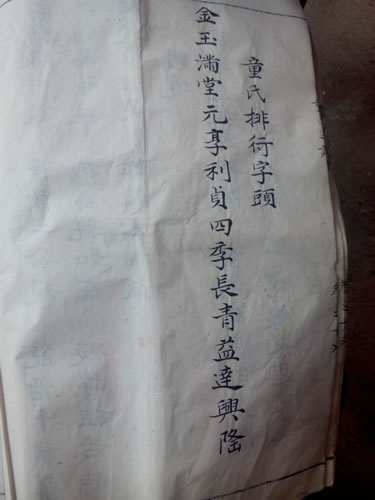 童氏排行字頭
金玉滿堂元享利貞四季長青益達興隆